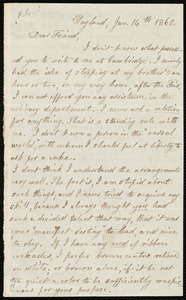 Wayland, Jan. 14th 1860.
Dear Friend,
I don't know what possessed
you to write to me at Cambridge. I merely
had the idea of stopping at my brother's an
hour or two, on my way home, after the
render you any assistance in the
culinary department. I must a
for anything. That is a standing rule with
us. I don't know a person in the "social
world," with whom I should feel at liberty to
ask for a cake.
I don't think I understand the arrangements
very well. The fact is, I am stupid about
such things and I never tried to acquire any
skill, because I always thought you had
such a decided talent that way, that it was
your "manifest destiny" to lead, and mine
to obey. If I have any need of ribbon
I prefer brown
on white, or brown alone, if it be not
too quiet a color to be sufficiently conspic-
uous for your purpose.